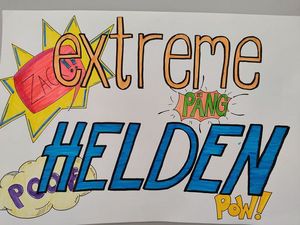 extreme
ZACK!!
PÄNG
HELDEN
POOF
POW!